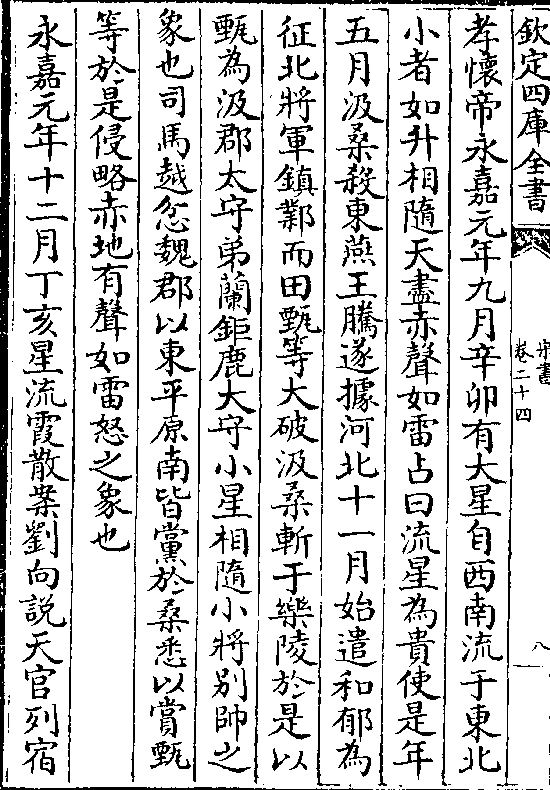 欽定四庫全書
宋書
卷二十四
八
孝懷帝永嘉元年九月辛卯有大星自西南流于東北
小者如升相隨天盡赤聲如雷占曰流星為貴使是年
五月汲桑殺東燕王騰遂據河北十一月始遣和郁為
征北將軍鎮鄴而田甄等大破汲桑斬于樂陵於是以
甄為汲郡太守弟蘭鉅鹿大守小星相隨小將别帥之
象也司馬越忿魏郡以東平原南皆黨於桑悉以賞甄
等於是侵略赤地有聲如雷怒之象也
永嘉元年十二月丁亥星流霞散案劉向說天官列宿